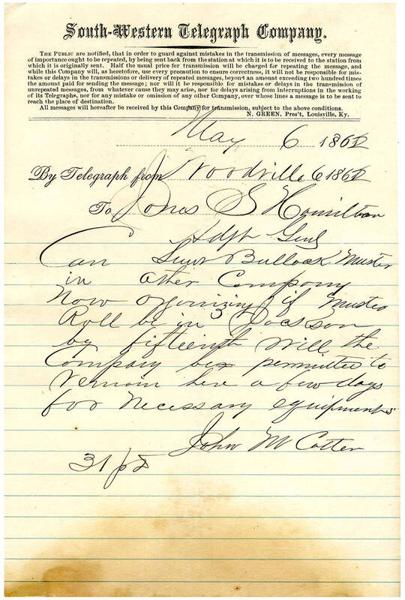 South-Western Telegraph Company.
The Public are notified, that in order to guard against mistakes in the transmission of messages, every message
of importance ought to be repeated, by being sent back from the station at which it is to be received to the station from
which it is originally sent. Half the usual price for transmission will be charged for repeating the message, and
while this Company will, as heretofore, use every precaution to ensure correctness, it will not be responsible for mis-
takes or delays in the transmissions or delivery of repeated messages, beyond an amount exceeding two hundred times
the amount paid for sending the message; nor will it be responsible for mistakes or delays in the transmission of
unrepeated messages, from whatever cause they may arise, nor for delays arising from interruptions in the working
of its Telegraphs, nor for any mistake or omission of any other Company, over whose lines a message is to be sent to
reach the place of destination.
All messages will hereafter be received by this Company for transmission, subject to the above conditions.
N. GREEN, Pres't, Louisville, Ky.
May 6 1862
By Telegraph from Woodville 6 1862
To Jones S Hamilton
Adjt Genl
Can Lieut Bullock Muster
in other Company
Now organizing if muster
Roll be in Jackson
by fifteenth will the
Company be permitted to
remain here a few days
for necessary equipments
John McCotter
31 pd